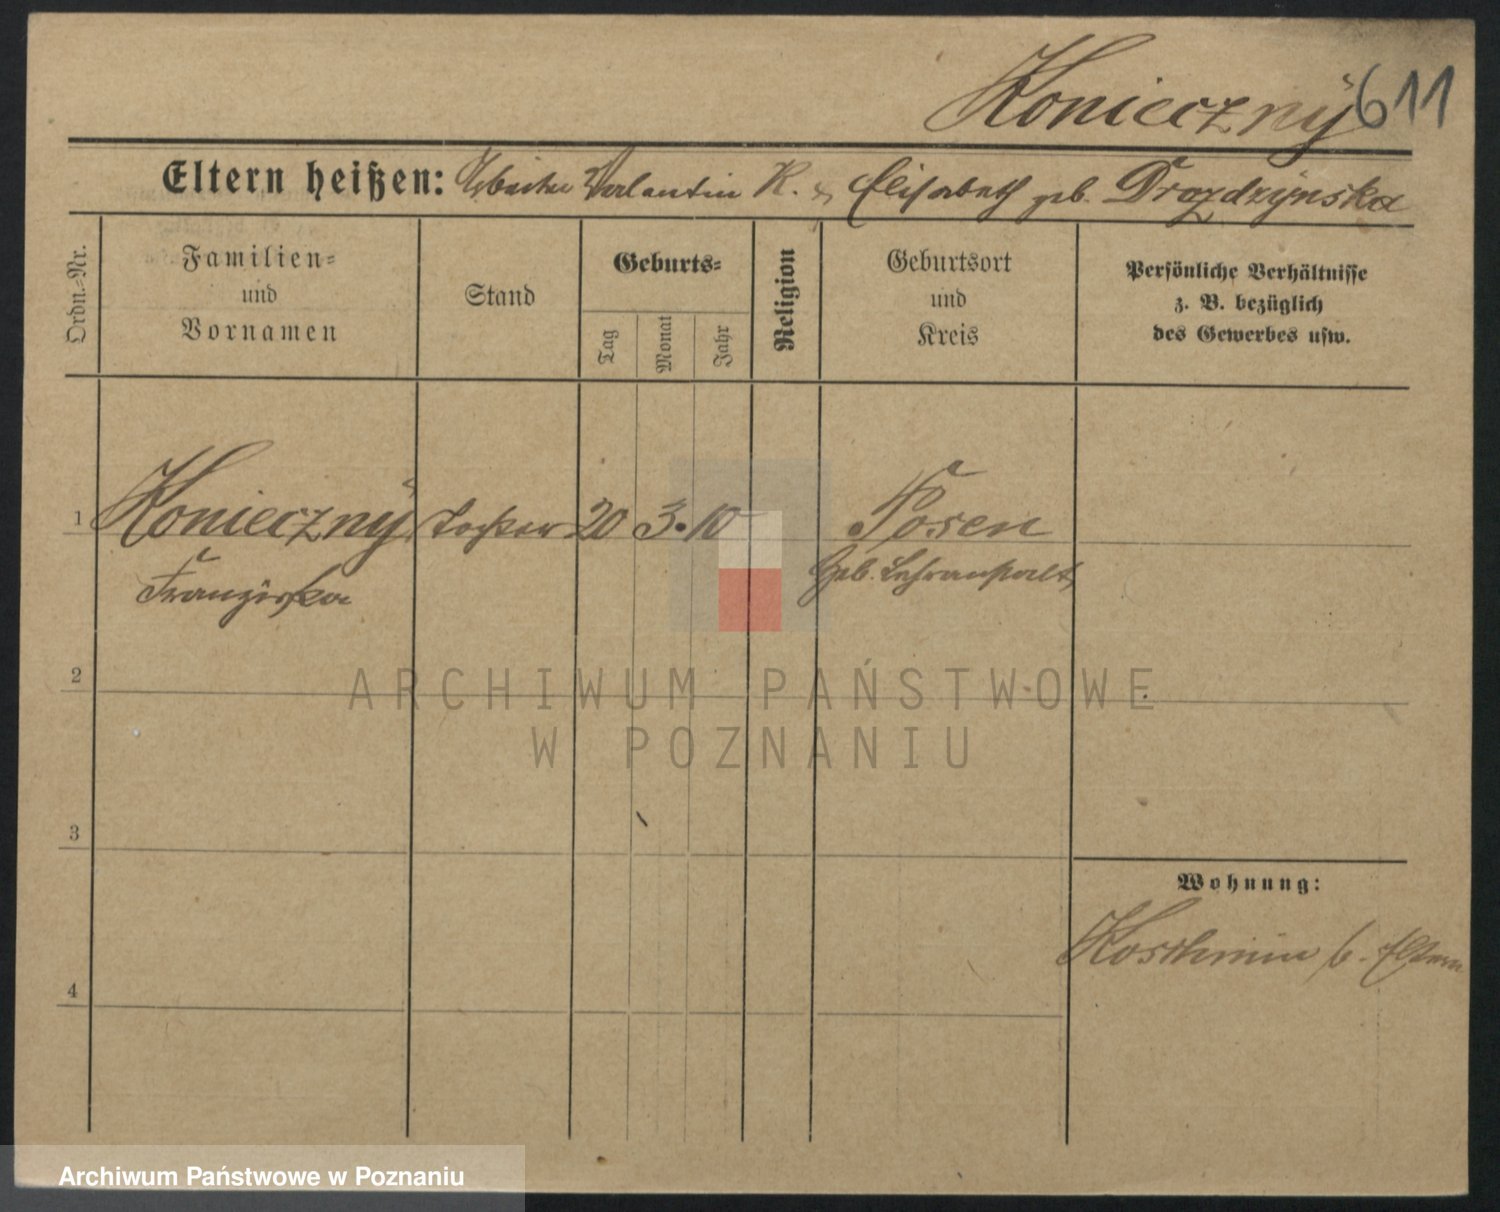 Konieczny 611
Eltern heißen: Arbeiter Valentin K. & Elisabeth geb. Drozdzynska
Ordn.-Nr.
Familien-
und
Vornamen
Stand
Geburts-
Tag
Monat
Jahr
Religion
Geburtsort
und
Kreis
Persönliche Verhältnisse
z. B. bezüglich
des Gewerbes usw.
1 Konieczny Tochter 20 3. 10 Posen
Franziska Geb. Lehranstalt
2
3
4
Wohnung:
Koschmin b. Eltern
ARCHIWUM PAŃSTWOWE
W POZNANIU
Archiwum Państwowe w Poznaniu